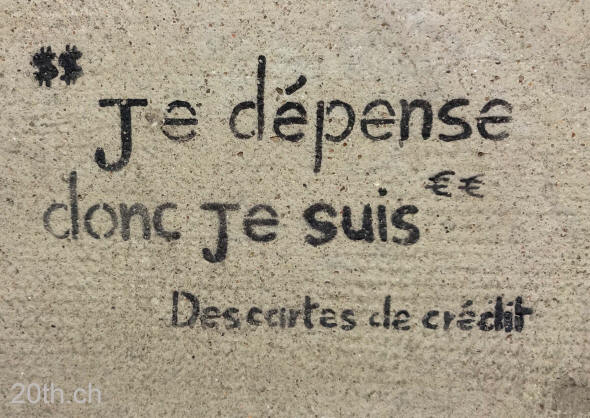 $$ Je dépense
donc Je suis €€
Descartes de crédit
20th.ch